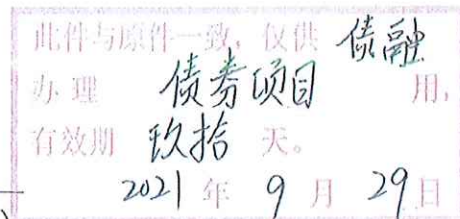 此件与原件一致，仅供 债融
办理 债券项目 用，
有效期 玖拾 天。
2021 年 9 月 29 日